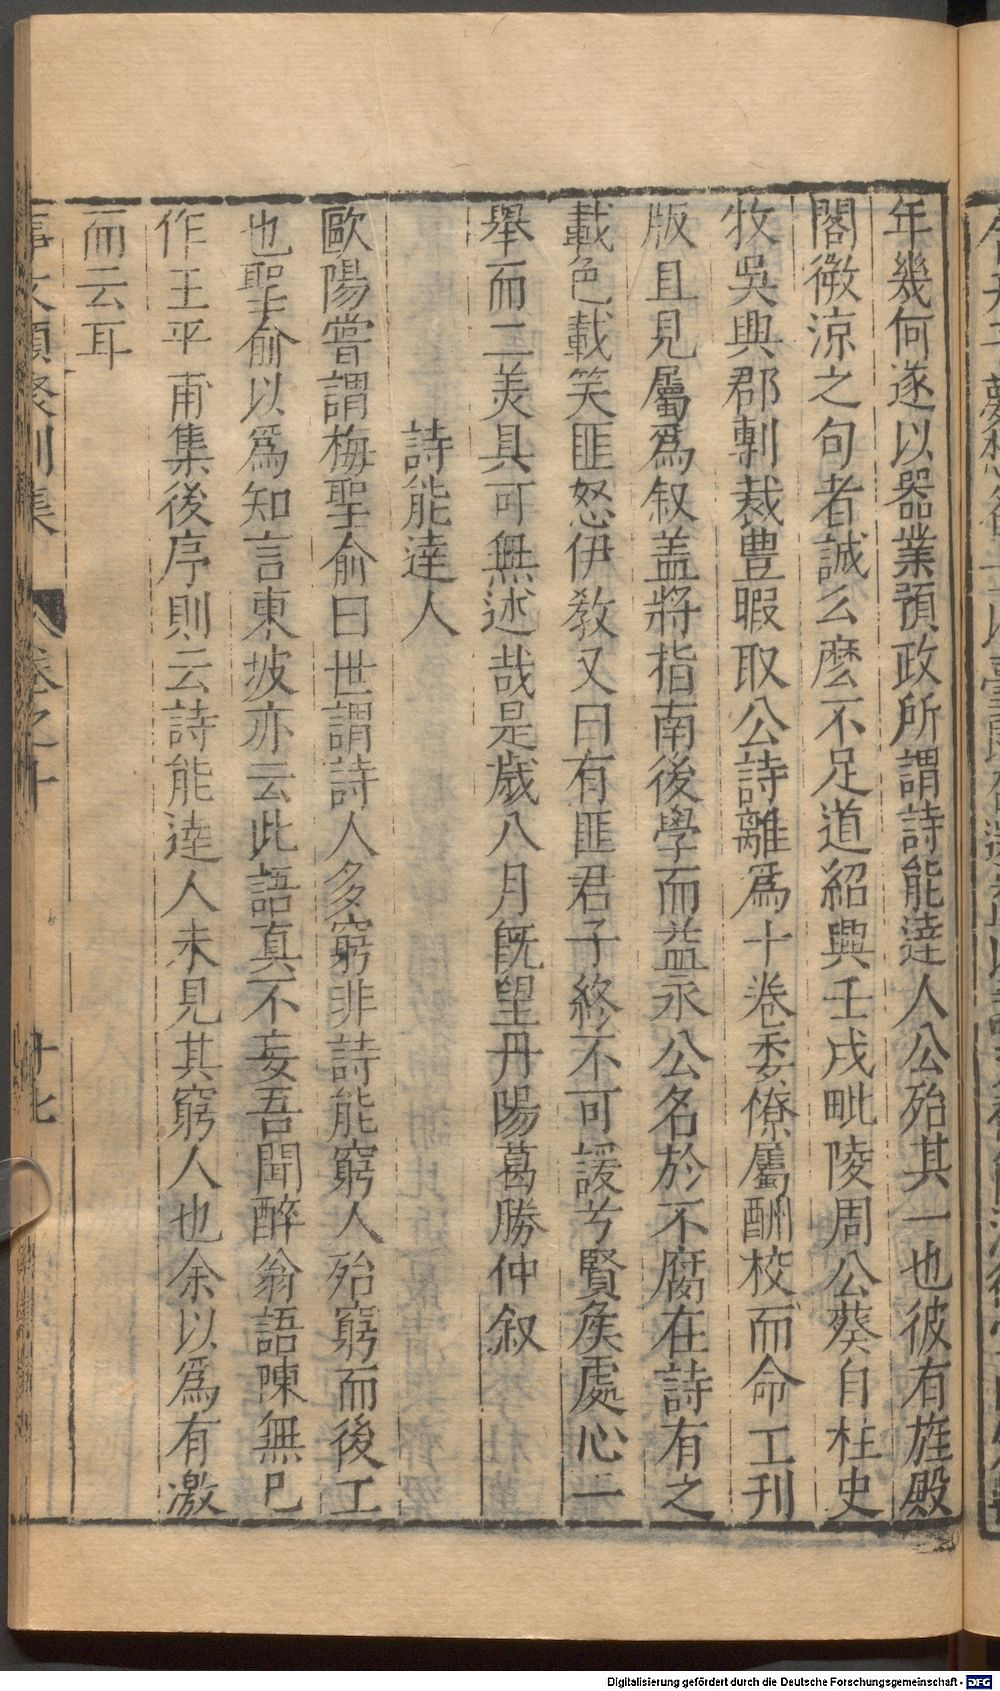 年幾何遂以器業預政所謂詩能達人公殆其一也彼有旌殿
閣微涼之句者誠么麽不足道紹興壬戌毗陵周公葵自柱史
牧吳興郡剸裁豊暇取公詩離爲十卷委僚屬酬校而命工刊
版且見屬爲叙盖將指南後學而益永公名於不腐在詩有之
載色載笑匪怒伊教又曰有匪君子終不可諼兮賢矦處心二
舉而二美具可無述哉是歲八月旣望丹陽葛勝仲叙
詩能達人
歐陽嘗謂梅聖俞曰世謂詩人多窮非詩能窮人殆窮而後工
也聖俞以爲知言東坡亦云此語真不妄吾聞醉翁語陳無已
作王平甫集後序則云詩能達人未見其窮人也余以爲有激
而云耳
事文類聚別集
卷之十
十七
Digitalisierung gefördert durch die Deutsche Forschungsgemeinschaft - DFG